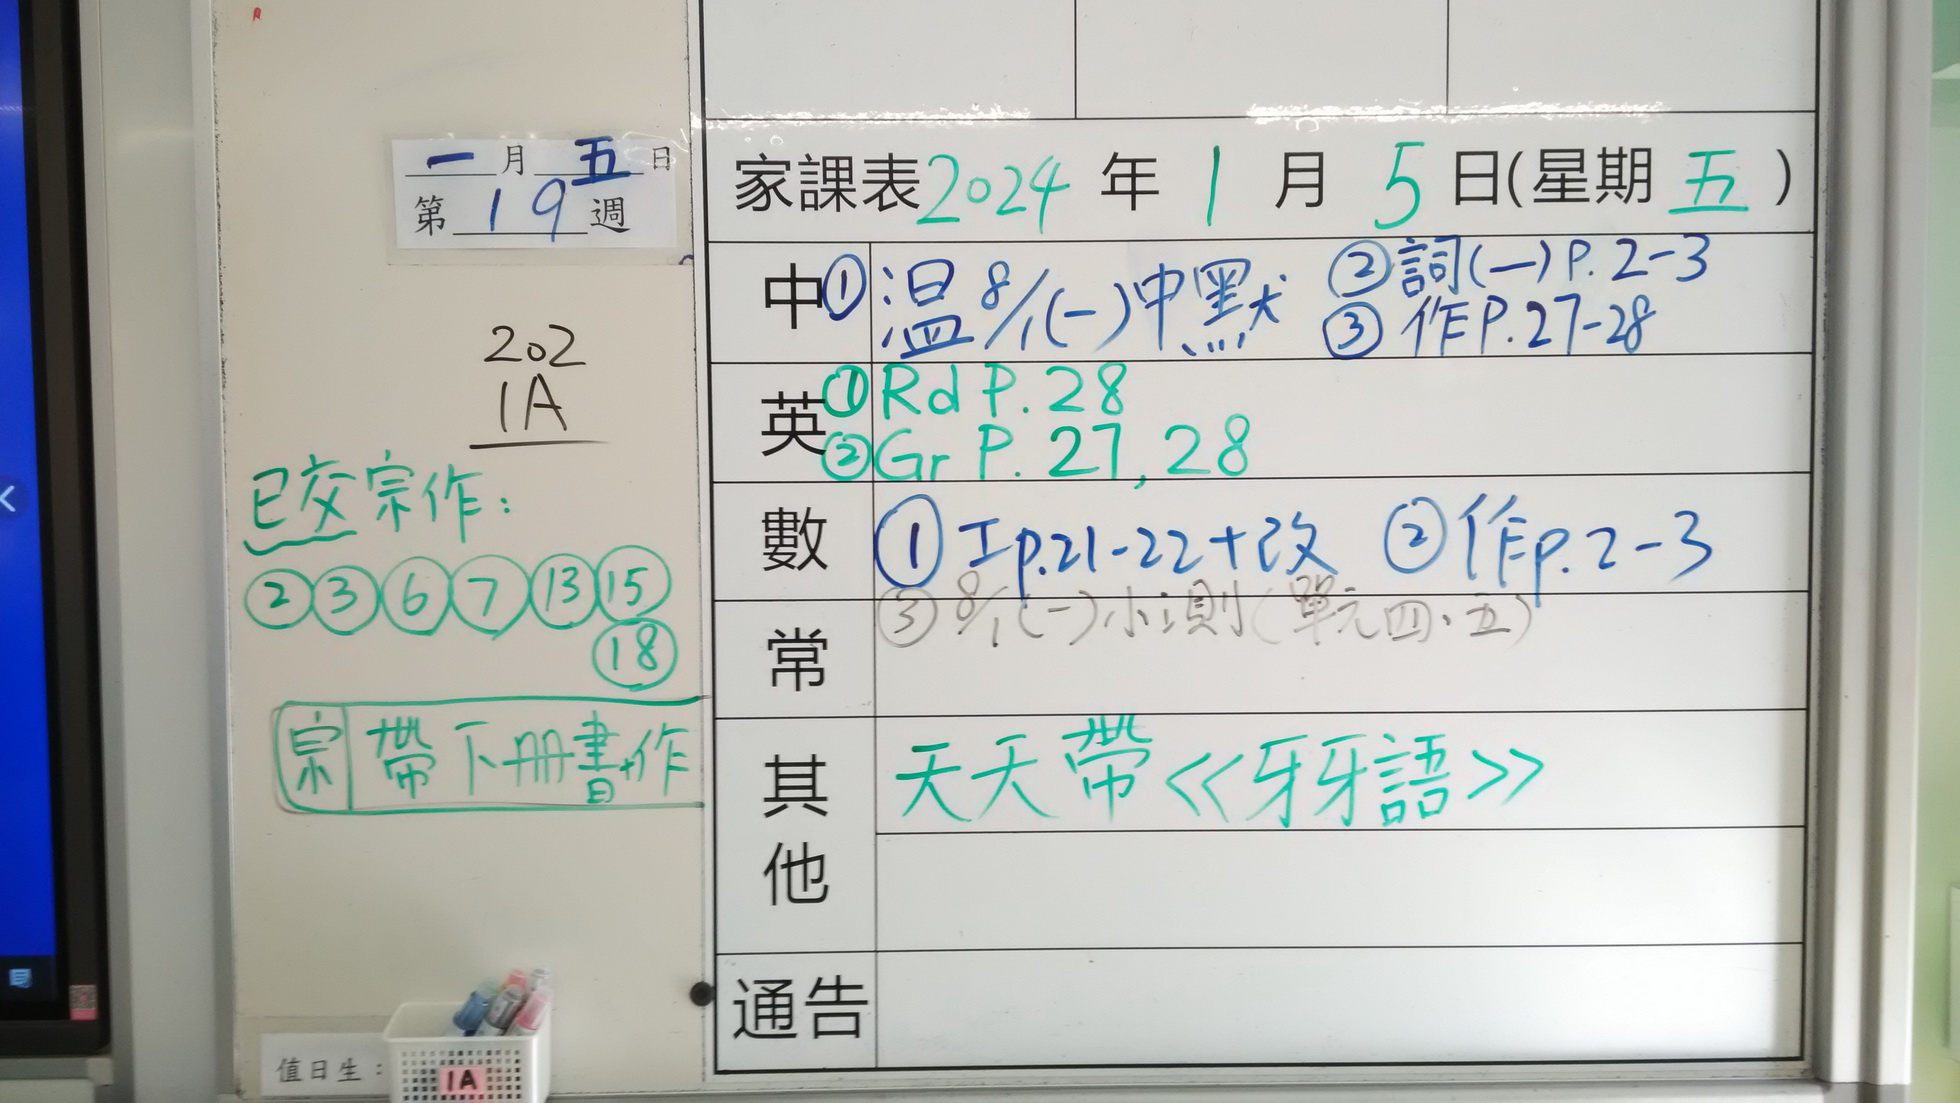 一月五日
第19週
202
1A
已交宗作:
② ③ ⑥ ⑦ ⑬ ⑮
⑱
宗 帶下冊書+作
值日生:
1A
家課表2024年1月5日(星期五)
中 ① 溫8/1(一)中默 ② 詞(一)P.2-3
③ 作P.27-28
英 ① Rd P.28
② Gr P.27,28
數 ① 工p.21-22+改 ② 作p.2-3
③ 8/1(一)小測(單元四、五)
常
其他 天天帶<<牙牙語>>
通告